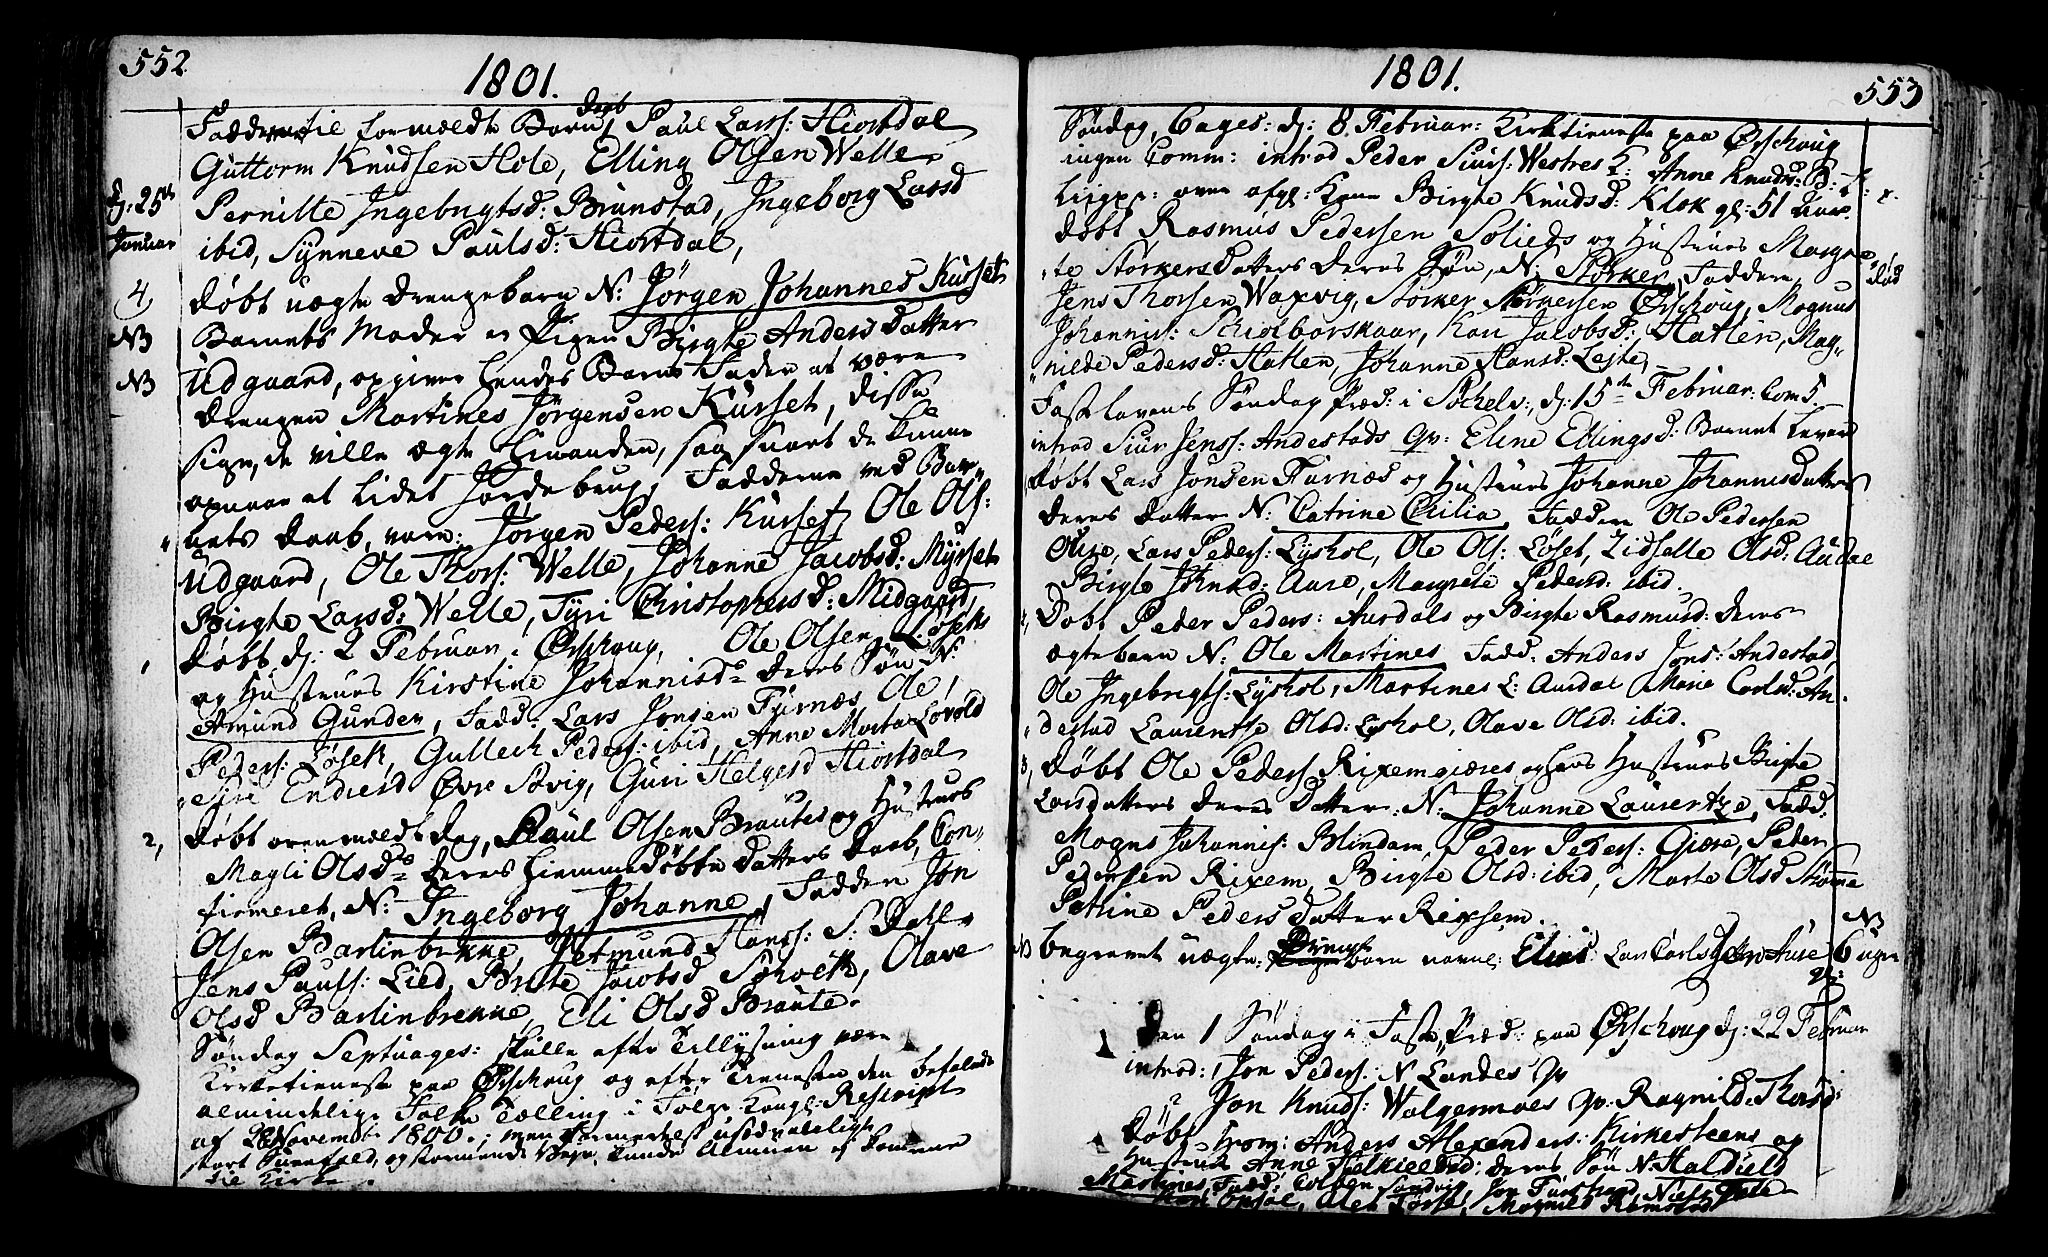 552
1801.
Fadderne til formældte Barns Daab, Paul Lars: Hiortdal
Guttorm Knudsen Hole, Elling Olsen Welle
Pernille Ingebrigtsd: Brunstad, Ingeborg Larsd
ibid, Synneve Paulsd: Hiortdal,
d: 25de
Januar
4
døbt uægte Drengebarn N: Jörgen Johannes Kurset
NB
Barnets Moder er Pigen Birgte Anders Datter
NB
Udgaard, opgiver hendes Barns Fader at være
Drengen Martines Jörgensen Kurset, disse
sige, de ville ægte hinanden, saa snart de kunne
opnaae et lidet Jordebrug, Fadderne ved Bar„
„nets Daab, vare: Jörgen Peders: Kurset, Ole Ols:
Udgaard, Ole Thors: Welle, Johanne Jacobsd: Myrset
Birgte Larsd: Welle, Tyri Christophersd: Midgaard,
døbt d: 2 Februar. Ørschoug, Ole Olsen Løseth
og Hustrues Kirstine Johannisd: deres Søn N:
Amund Gunder, Fadd: Lars Jonsen Furnæs, Ole
Peders: Løseth, Gullech Peders: ibid, Anne Marta Lovold
Endresd Øvre Aavig, Guri Helgesd Hiortdal
2,
døbt ovenmeldte dag, Paul Olsen Brautes og Hustrues
Magli Olsd: deres hiemmedøbte Datters Daab, Con„
firmeret, N: Ingeborg Johanne, Faddere Jon
Olsen Barlinbrekke, Jetmund Hans: S: Dahl
Jens Pauls: Lied, Brite Jacobsd Solvek, Olave
Olsd Barlinbrekke, Eli Olsd Braute.
Søndag Septuages: skulle efter Tillysning være
Kirketieneste paa Ørschoug og efter Tienesten den befalede
almindelige Folke Tælling i Følge Kongl: Rescript
af 28 Novembr: 1800.; men formedelst usædvanligt
stort Sneefald, og stormende Veyr, kunde Almuen ej komme
til Kirke.
553
1801.
Søndag Sexages: d: 8. Februar: Kirktieneste paa Ørschoug
ingen Comm: introd Peder Siurs: Westres Q: Anne Knudsd:
Liigpr: over afg: Kone Birgte Knudsd: Klok gl: 51 Aar.
døbt Rasmus Pedersen Solieds og Hustrues Margre„
„te Størkers Datters deres Søn, N: Størker, Faddere,
død
Jens Thorsen Waxvig, Størker Størkersen Ørschoug, Magnus
Johannis: Schiolborskaar, Kari Jacobsd: Hatlen, Mag„
„nilde Pedersd: Hatlen, Johanne Hansd: Lejte,
Fastelavens Søndag Præd: i Søchelv: d: 15de Februar: Com 5.
introd Siur Jens: Andestads Qv: Eline Ellingsd: Barnet levende
døbt Lars Jonsen Furnæs og Hustrues Johanne Johannisdatters
deres Datter N: Catrine Cicilia Faddere Ole Pedersen
Aure, Lars Peders: Lyshol, Ole Ols: Løset, Zidselle Olsd: Aurdal
Birgte Johnsd: Aure, Margrete Pedersd: ibid.
2,
Døbt Peder Peders: Aurdals og Birgte Rasmusd: deres
ægtebarn N: Ole Martines Fadd: Anders Jons: Andestad,
Ole Ingebrigts: Lyshol, Martines L: Aurdal Marie Carlsd: An„
„destad Laurentse Olsd: Lyshol, Olave Olsd: ibid.
3,
døbt Ole Peders Rixemgiæres og hans Hustrues Birgte
Larsdatters deres Datter: N: Johanne Laurentze, Fadd:
Mogns Johannis: Blindam, Peder Peders: Giære, Peder
Pedersen Rixem, Birgte Olsd: ibid, Marte Olsd Strømme
Petrine Peders Datter Rixsem.
NB
NB
begravet uægte: Drenge barn navnl: Elias: Lars Carls Aure 6 uger
gl:
Den 1 Søndag i Faste, Præd: paa Ørschoug d: 22 Februar
introd: 1 Jon Peders: N Landes Qv
2 Jon Knuds: Walgermoes Qv: Ragnild Thorsd:
Døbt from: Anders Alexanders: Kirkesteens og
Hustrue Anne deres Søn N Haldield
Martines, Fadd: Colben Sandvig, Jon Furstrand, Niels Hole